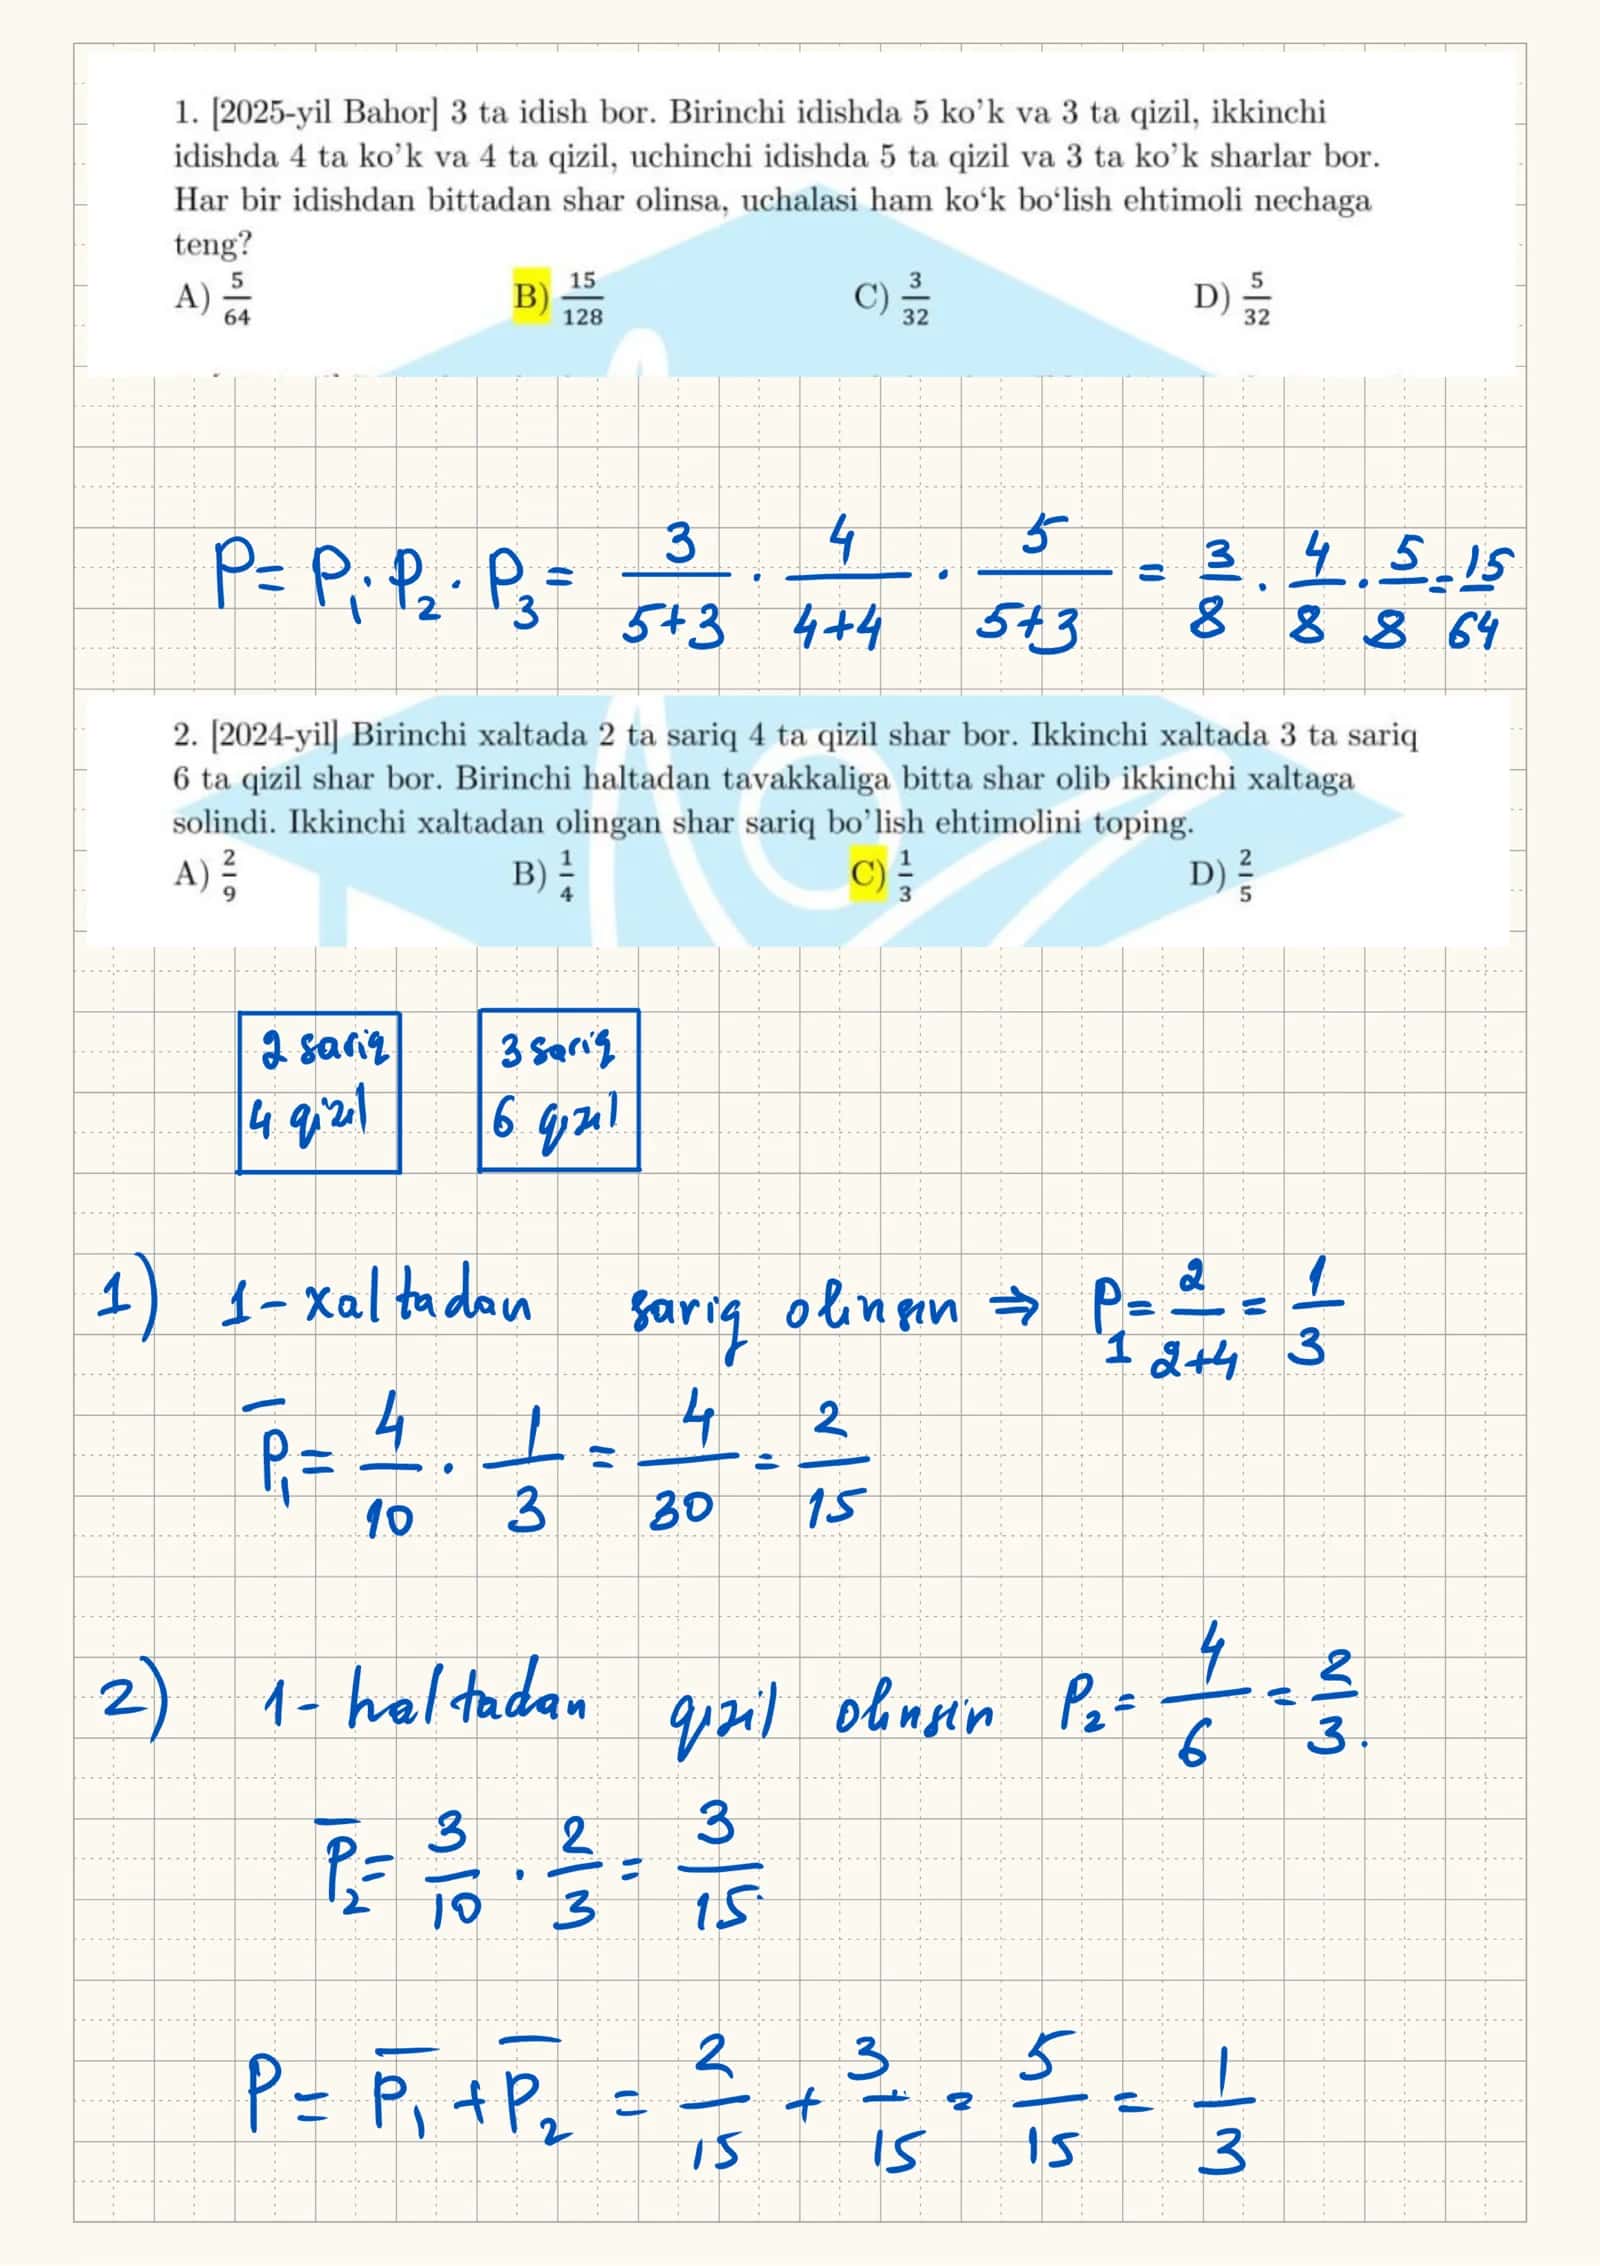 1. [2025-yil Bahor] 3 ta idish bor. Birinchi idishda 5 ko'k va 3 ta qizil, ikkinchi
idishda 4 ta ko'k va 4 ta qizil, uchinchi idishda 5 ta qizil va 3 ta ko'k sharlar bor.
Har bir idishdan bittadan shar olinsa, uchalasi ham ko‘k bo‘lish ehtimoli nechaga
teng?
A) 5/64 B) 15/128 C) 3/32 D) 5/32
P = P₁ · P₂ · P₃ = 3/(5+3) · 4/(4+4) · 5/(5+3) = 3/8 · 4/8 · 5/8 = 15/64
2. [2024-yil] Birinchi xaltada 2 ta sariq 4 ta qizil shar bor. Ikkinchi xaltada 3 ta sariq
6 ta qizil shar bor. Birinchi haltadan tavakkaliga bitta shar olib ikkinchi xaltaga
solindi. Ikkinchi xaltadan olingan shar sariq bo'lish ehtimolini toping.
A) 2/9 B) 1/4 C) 1/3 D) 2/5
2 sariq 3 sariq
4 qizil 6 qizil
1) 1-xaltadan sariq olinsin ⇒ P₁ = 2/(2+4) = 1/3
P̅₁ = 4/10 · 1/3 = 4/30 = 2/15
2) 1-haltadan qizil olinsin P₂ = 4/6 = 2/3.
P̅₂ = 3/10 · 2/3 = 3/15
P = P̅₁ + P̅₂ = 2/15 + 3/15 = 5/15 = 1/3